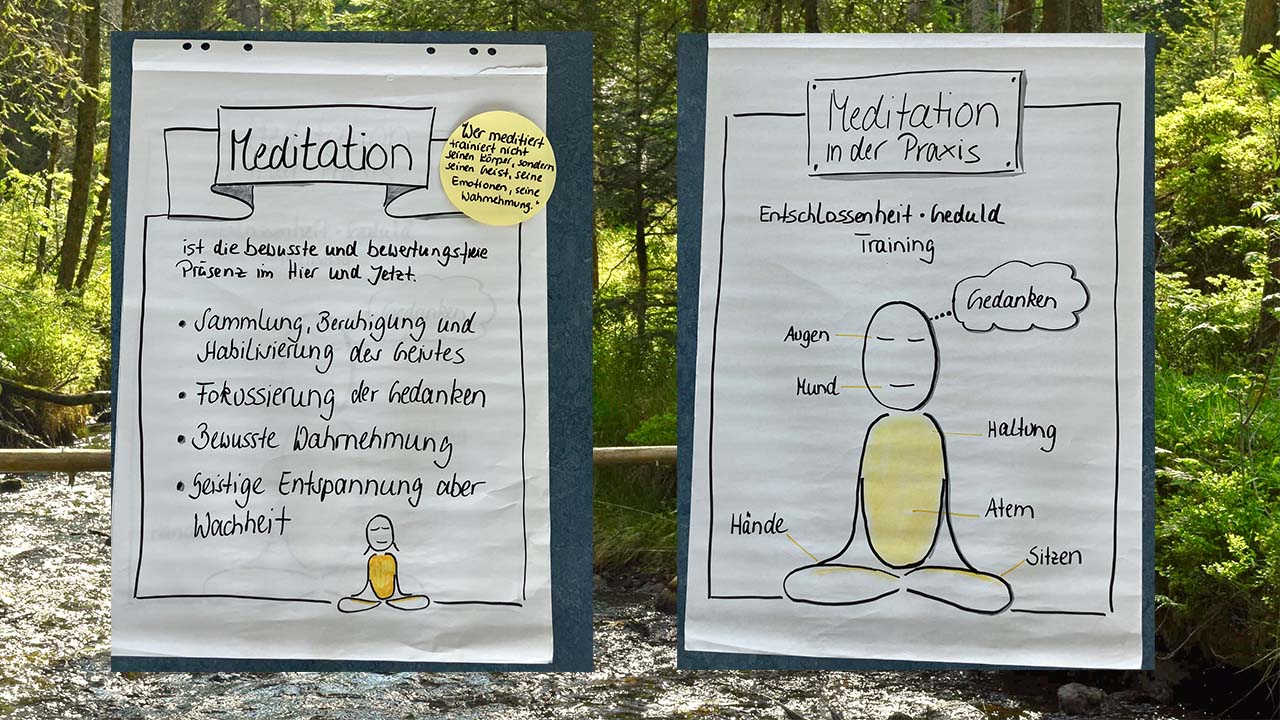 Meditation
Wer meditiert
trainiert nicht
seinen Körper, sondern
seinen Geist, seine
Emotionen, seine
Wahrnehmung."
ist die bewusste und bewertungsfreie
Präsenz im Hier und Jetzt.
• Sammlung, Beruhigung und
Stabilisierung des Geistes
• Fokussierung der Gedanken
• Bewusste Wahrnehmung
• Geistige Entspannung aber
Wachheit
Meditation
in der Praxis
Entschlossenheit • Geduld
Training
Gedanken
Augen
Mund
Haltung
Atem
Hände
Sitzen